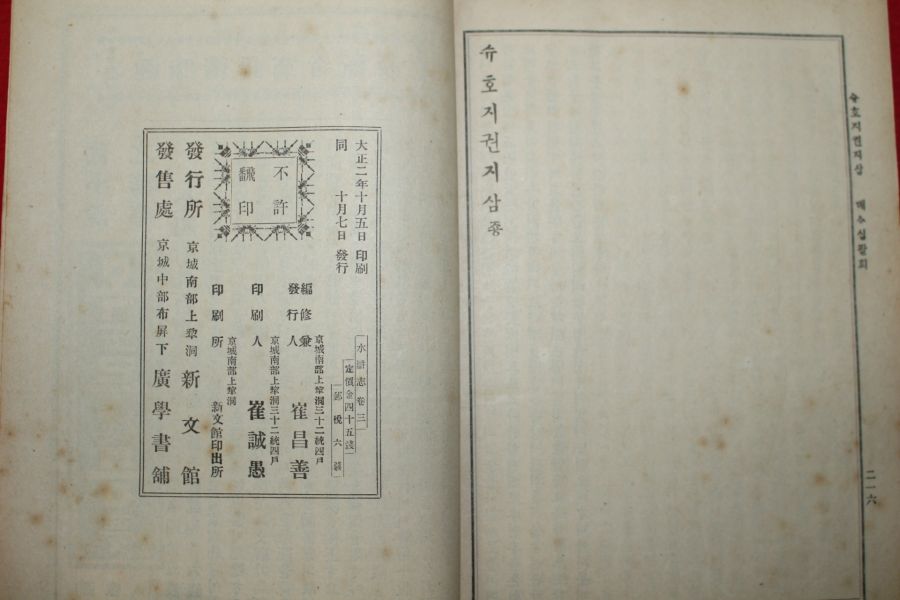 슈호지권지삼죵
슈호지권지삼 뎨수십팔회
二一六
水滸志卷三
定價金四十五淺
郵稅六錢
大正二年十月五日 印刷
同 十月七日 發行
不許
飜印
編修兼
發行人
京城南部上犂洞三十二統四戶
崔昌善
印刷人
京城南部上犂洞三十二統四戶
崔誠愚
印刷所
京城南部上犂洞
新文館印出所
發行所 京城南部上犂洞 新文館
發售處 京城中部布屛下 廣學書舖